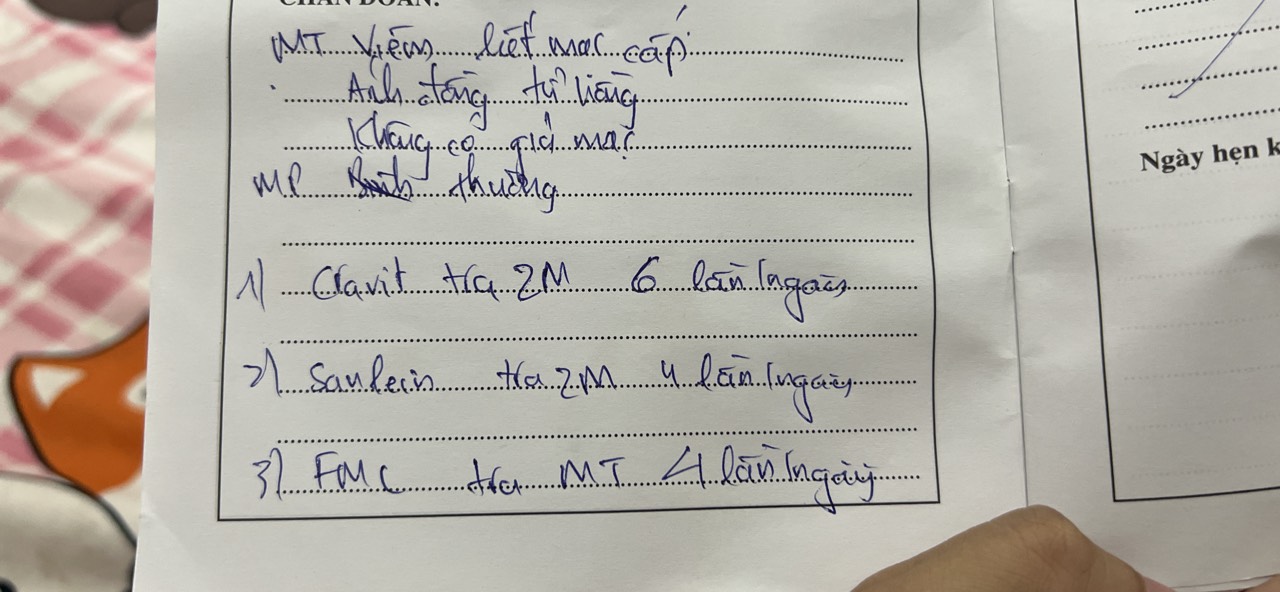 CHẨN ĐOÁN:
MT Viêm kết mạc cấp
Ánh đồng tử hồng
Không có giả mạc
MP Bình thường
1) Cravit tra 2M 6 lần/ngày
2) Sanlein tra 2M 4 lần/ngày
3) FML tra MT 4 lần/ngày
Ngày hẹn k